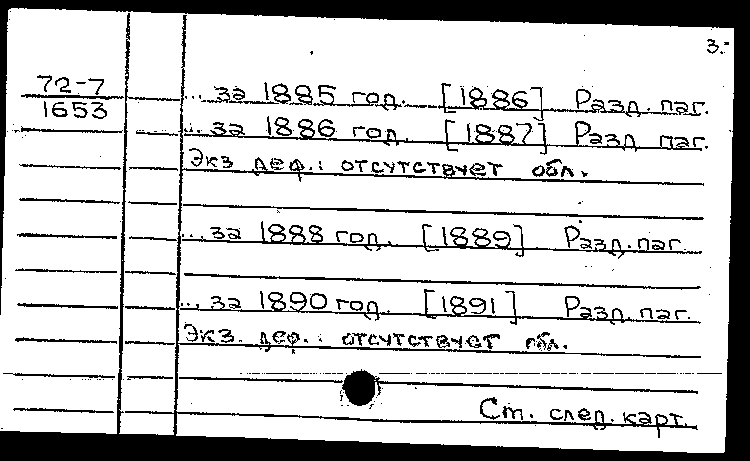 3.-
72-7
1653
... за 1885 год. [1886] Разд. паг.
... за 1886 год. [1887] Разд паг.
Экз деф.: отсутствует обл.
... за 1888 год. [1889] Разд. паг
... за 1890 год. [1891] Разд. паг.
Экз. деф.: отсутствует обл.
Ст. след. карт.